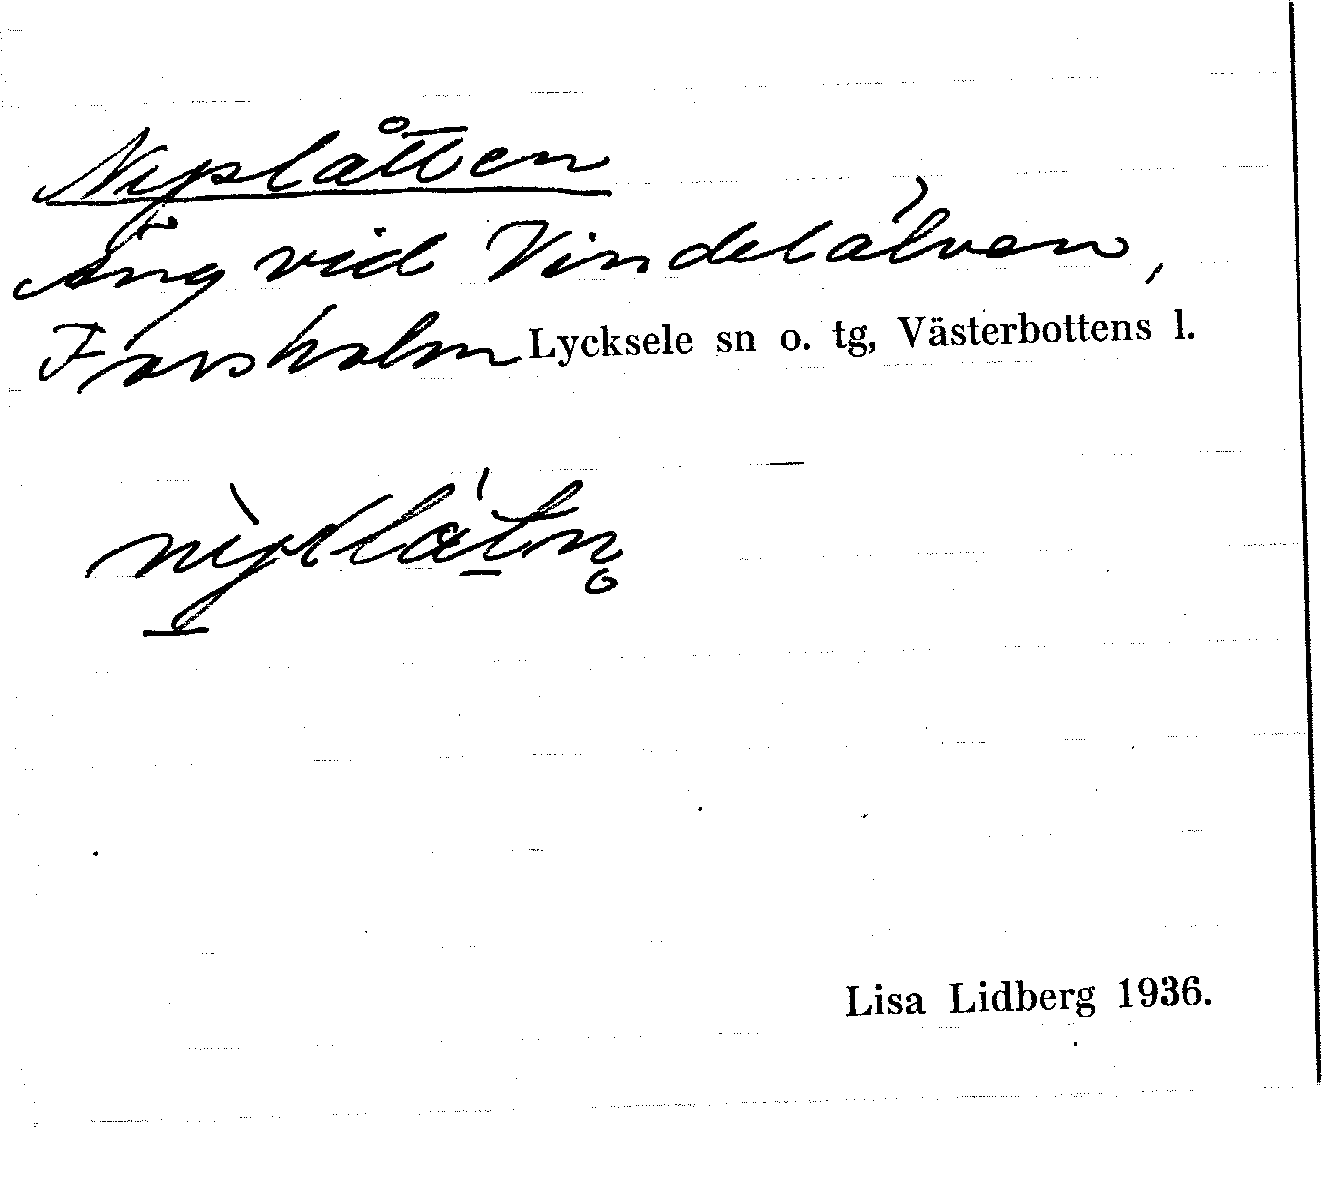 Niplåtten
Äng vid Vindelälven,
Forsholm Lycksele sn o. tg, Västerbottens l.
Lisa Lidberg 1936.